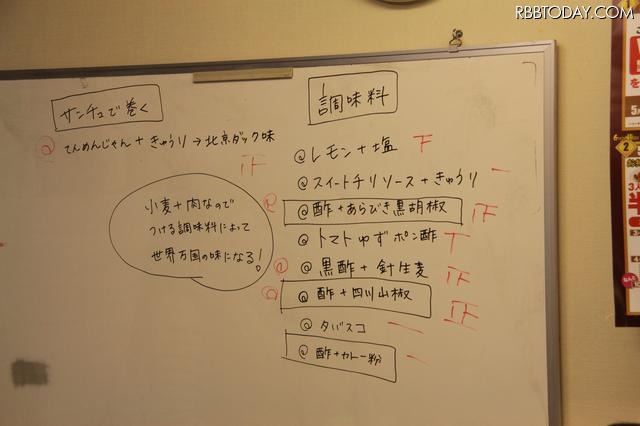 RBBTODAY.COM
サンチュで巻く
@ てんめんじゃん + きゅうり → 北京ダック味
正
小麦+肉なので
つける調味料によって
世界万国の味になる!
調味料
@ レモン+塩 下
@ スイートチリソース+きゅうり 一
@ 酢+あらびき黒胡椒 正
@ トマトゆずポン酢 T
@ 黒酢+針生麦 正
@ 酢+四川山椒 正
@ タバスコ 一
@ 酢+カレー粉 一
2